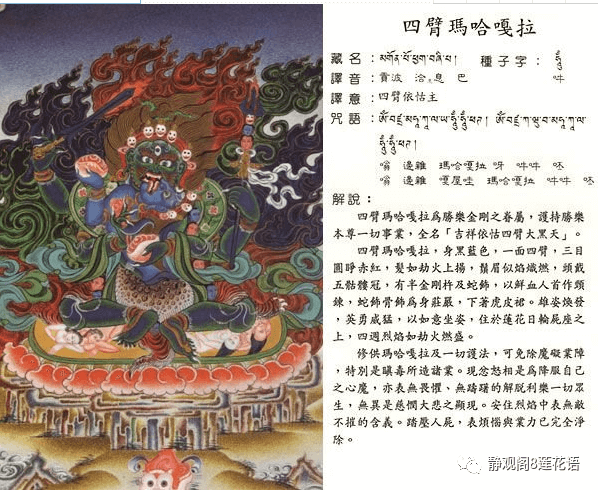 四臂瑪哈嘎拉
藏名：མགོན་པོ་ཕྱག་བཞི་པ། 種子字：ཧཱུྃ
譯音：貢波 洽息 巴 吽
譯意：四臂依怙主
咒語：ༀ་བཛྲ་མ་ཧཱ་ཀཱ་ལ་ཡ་ཧཱུྃ་ཧཱུྃ་ཕཊ། ༀ་བཛྲ་ཀ་ཝུ་བ་མ་ཧཱ་ཀཱ་ལ་
ཧཱུྃ་ཧཱུྃ་ཕཊ།
嗡 邊雜 瑪哈嘎拉 呀 吽吽 呸
嗡 邊雜 嘎屋哇 瑪哈嘎拉 吽吽 呸
解說：
四臂瑪哈嘎拉為勝樂金剛之眷屬，護持勝樂
本尊一切事業，全名「吉祥依怙四臂大黑天」。
四臂瑪哈嘎拉，身黑藍色，一面四臂，三目
圓睜赤紅，髮如劫火上揚，鬚眉似焰熾燃，頭戴
五骷髏冠，有半金剛杵及蛇飾，以鮮血人首作頸
鍊，蛇飾骨飾為身莊嚴，下著虎皮裙。雄姿煥發
，英勇威猛，以如意坐姿，住於蓮花日輪屍座之
上，四週烈焰如劫火燃盛。
修供瑪哈嘎拉及一切護法，可免除魔礙業障
，特別是瞋毒所造諸業。現忿怒相是為降服自己
之心魔，亦表無畏懼、無躊躇的解脫利樂一切眾
生，無異是慈憫大悲之顯現。安住烈焰中表無敵
不摧的含義。踏壓人屍，表煩惱與業力已完全淨
除。
静观阁8莲花语